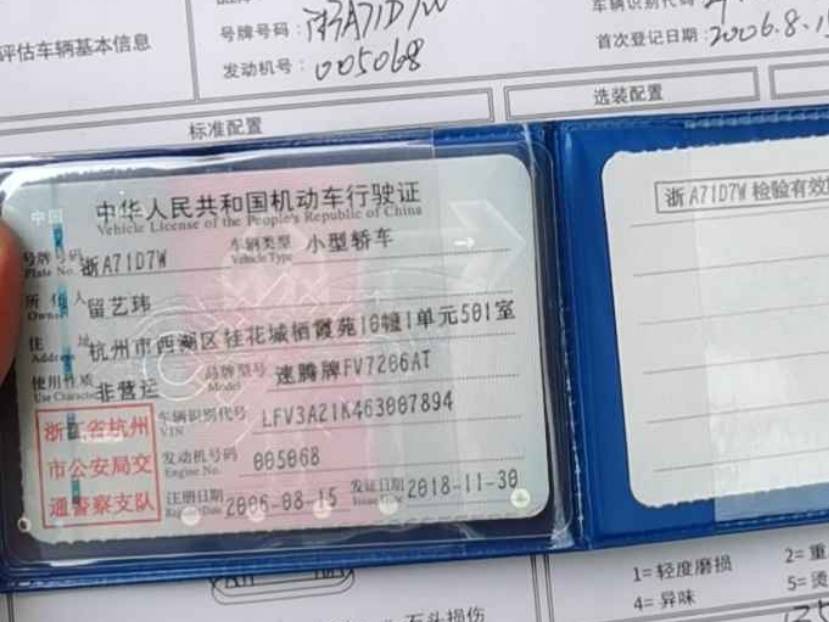 号牌号码: 浙A71D7W
车辆识别代码
评估车辆基本信息
发动机号: 005068
首次登记日期: 2006.8.15
选装配置
标准配置
中国
中华人民共和国机动车行驶证
Vehicle License of the People's Republic of China
号牌号码 浙A71D7W 车辆类型 小型轿车
Plate No. Vehicle Type
所有人 留艺玮
Owner
住址 杭州市西湖区桂花城栖霞苑10幢1单元501室
Address
使用性质 非营运 品牌型号 速腾牌FV7206AT
Use Character Model
浙江省杭州
市公安局交
通警察支队
车辆识别代号 LFV3A21K463007894
VIN
发动机号码 005068
Engine No.
注册日期 2006-08-15 发证日期 2018-11-30
Register Date Issue Date
浙A71D7W 检验有效
1=轻度磨损
2=重
4=异味
5=烫
石头损伤